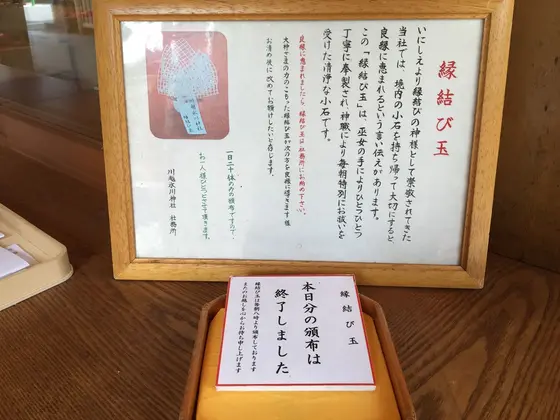 縁結び玉
いにしえより縁結びの神様として崇敬されてきた
当社では、境内の小石を持ち帰って大切にすると
良縁に恵まれるという言い伝えがあります。
この「縁結び玉」は、巫女の手によりひとつひとつ
丁寧に奉製され、神職により毎朝特別にお祓いを
受けた清浄な小石です。
良縁に恵まれましたら、縁結び玉は社務所にお納め下さい。
大神さまの力のこもった縁結び玉が次の方を良縁に導きます様
お清め後に改めてお願いしたいと存じます。
一日二十体のみの頒布ですので、
お一人様ひとつとさせて頂きます。
川越氷川神社 社務所
縁結び玉
本日分の頒布は
終了しました
縁結び玉は毎朝八時より頒布しております
またのお越しを心からお待ち申し上げます